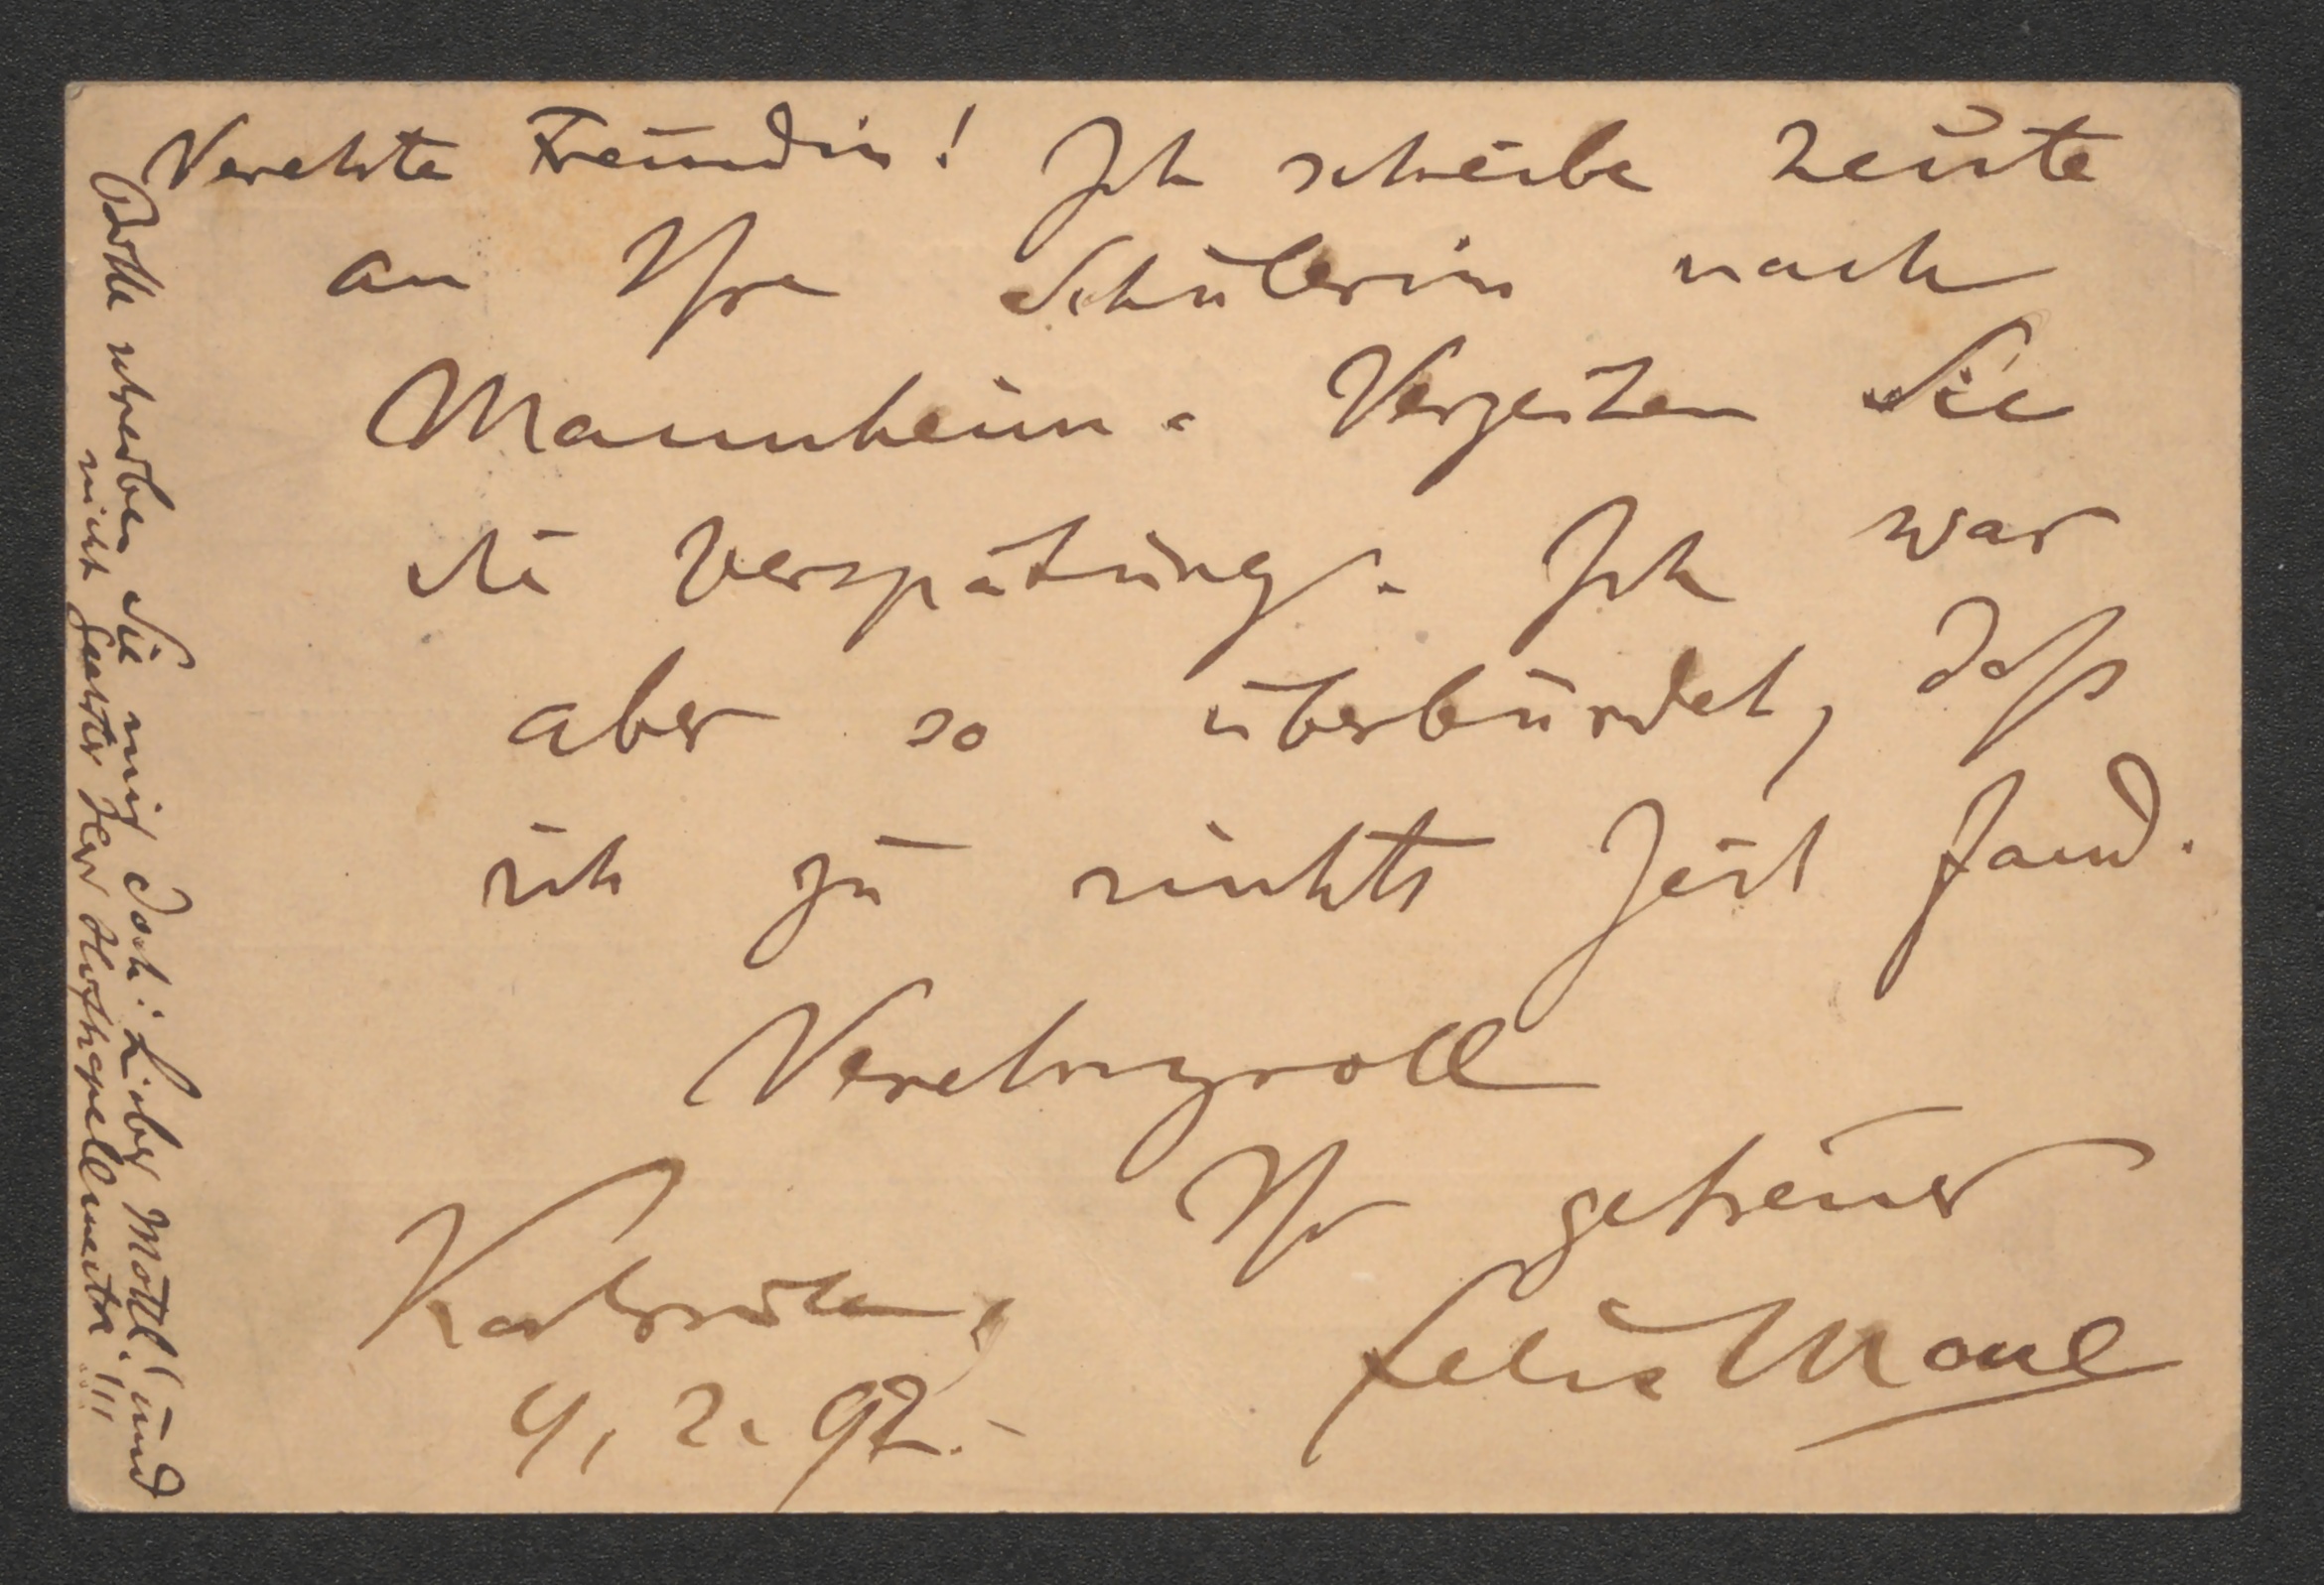 Verehrte Freundin! Ich schreibe heute
an Ihre Schülerin nach
Mannheim. Verzeihen Sie
die Verspätung. Ich war
aber so überbürdet, daß
ich zu nichts Zeit fand.
Verehrungsvoll
Ihr getreuer
Felix Mottl
Karlsruhe,
4, 2. 92.-
Bitte schreiben Sie mir doch: Lieber Mottl! und
nicht geehrter Herr Hofkapellmeister!!!